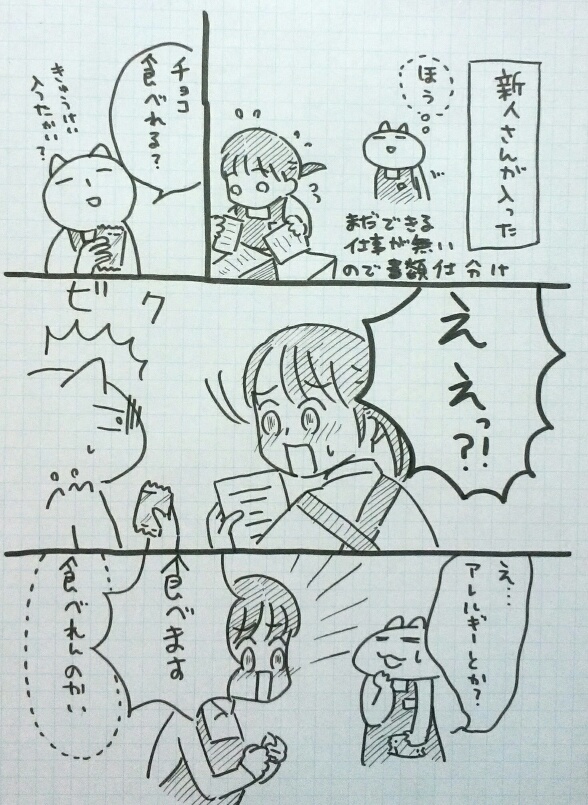 新人さんが入った
ほう
まだできる
仕事が無い
ので書類仕分け
チョコ
食べれる?
きゅうけい
入ったかい?
ええっ?!
ビク
え…
アレルギーとか?
食べます
食べれんのかい